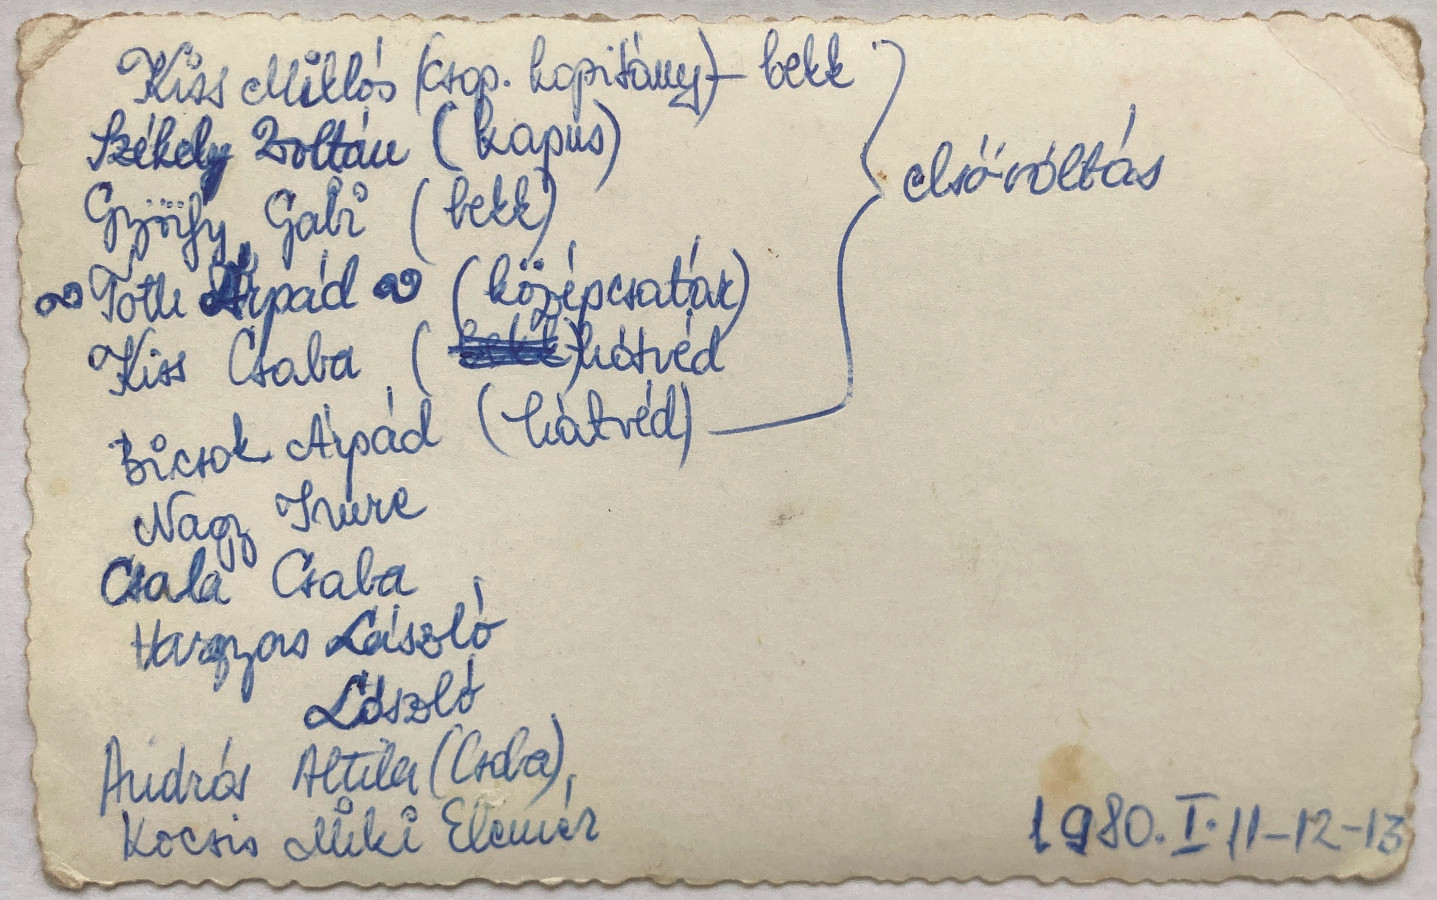 Kiss Miklós (csop. kapitány) - bekk
Székely Zoltán (kapus)
Györfy Gabi (bekk)
Tóth Árpád (középcsatár)
Kiss Csaba ( hátvéd
elsőváltás
Bicsok Árpád (hátvéd)
Nagy Imre
Csala Csaba
Hargyas László
László
András Attila (Csaba),
Kocsis Miki Elemér
1980. I. 11-12-13